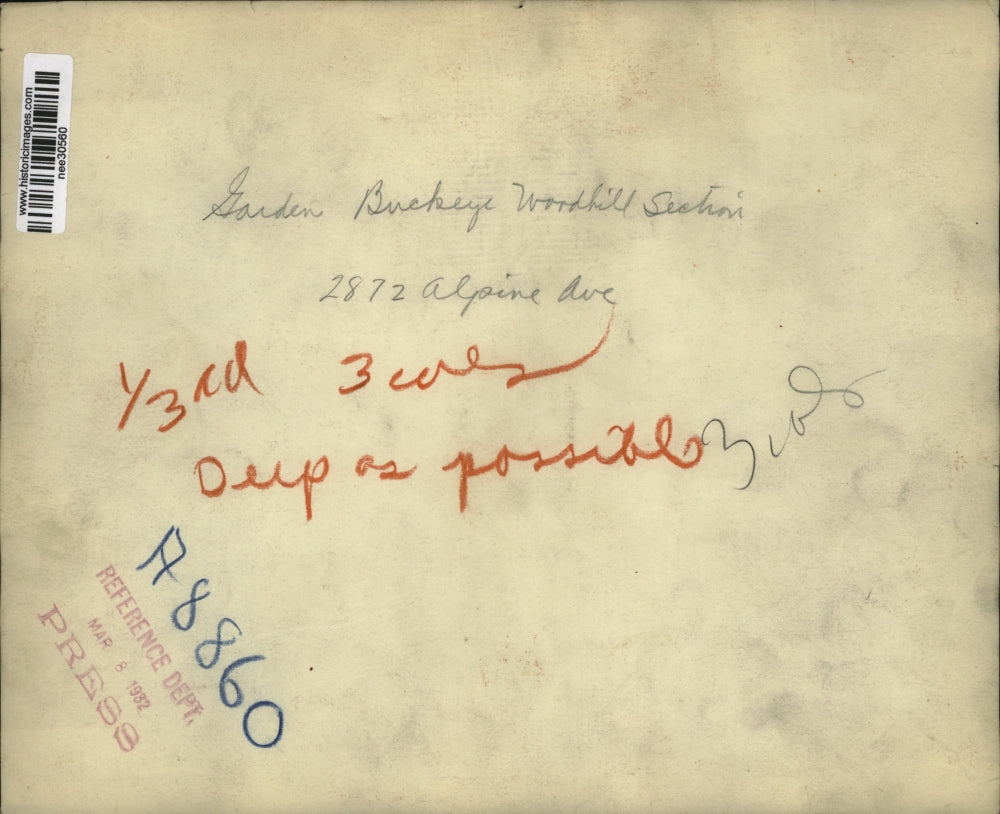 www.historicimages.com
nee30560
Garden Buckeye Woodhill Section
2872 Alpine Ave
1/3rd 3 cols
Deep as possible
3 cols
A8860
REFERENCE DEPT.
MAR 8 1932
PRESS